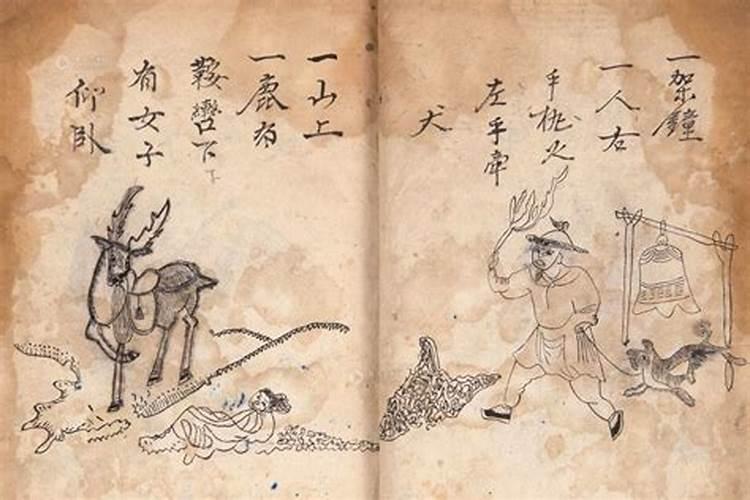 一架鐘
一人右
手桃火
左手牽
犬
一山上
一鹿有
鞍轡下
有女子
仰臥